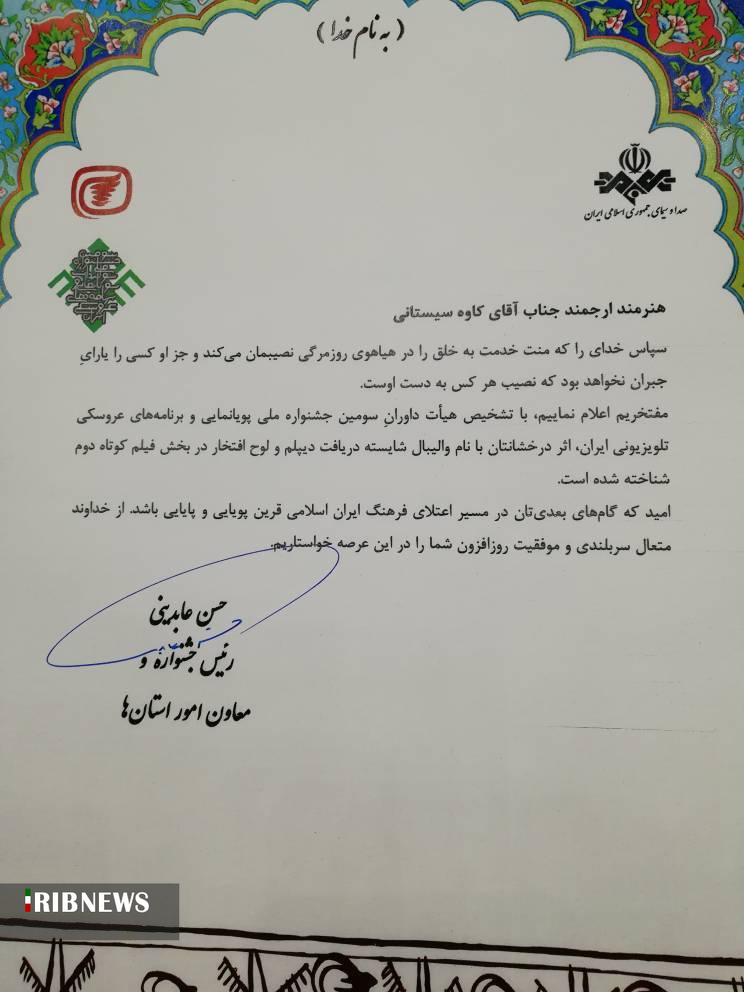 (به نام خدا)
صدا و سیمای جمهوری اسلامی ایران
هنرمند ارجمند جناب آقای کاوه سیستانی
سپاس خدای را که منت خدمت به خلق را در هیاهوی روزمرگی نصیبمان می‌کند و جز او کسی را یارایِ
جبران نخواهد بود که نصیب هر کس به دست اوست.
مفتخریم اعلام نماییم، با تشخیص هیأت داورانِ سومین جشنواره ملی پویانمایی و برنامه‌های عروسکی
تلویزیونی ایران، اثر درخشانتان با نام والیبال شایسته دریافت دیپلم و لوح افتخار در بخش فیلم کوتاه دوم
شناخته شده است.
امید که گام‌های بعدی‌تان در مسیر اعتلای فرهنگ ایران اسلامی قرین پویایی و پایایی باشد. از خداوند
متعال سربلندی و موفقیت روزافزون شما را در این عرصه خواستاریم.
حسن عابدینی
رئیس جشنواره و
معاون امور استان‌ها
IRIBNEWS